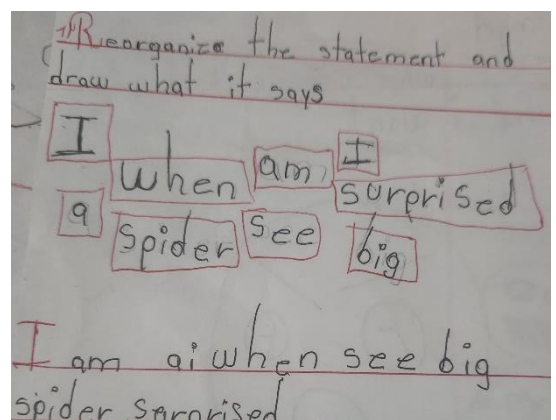 1) Reorganize the statement and
draw what it says
I when am I
a spider see surprised big
I am ai when see big
spider serprised